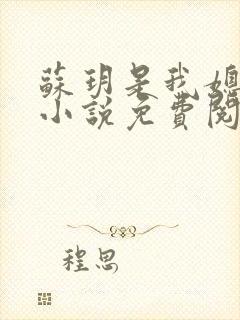 蘇玥是我媳
小說免費閱
程思